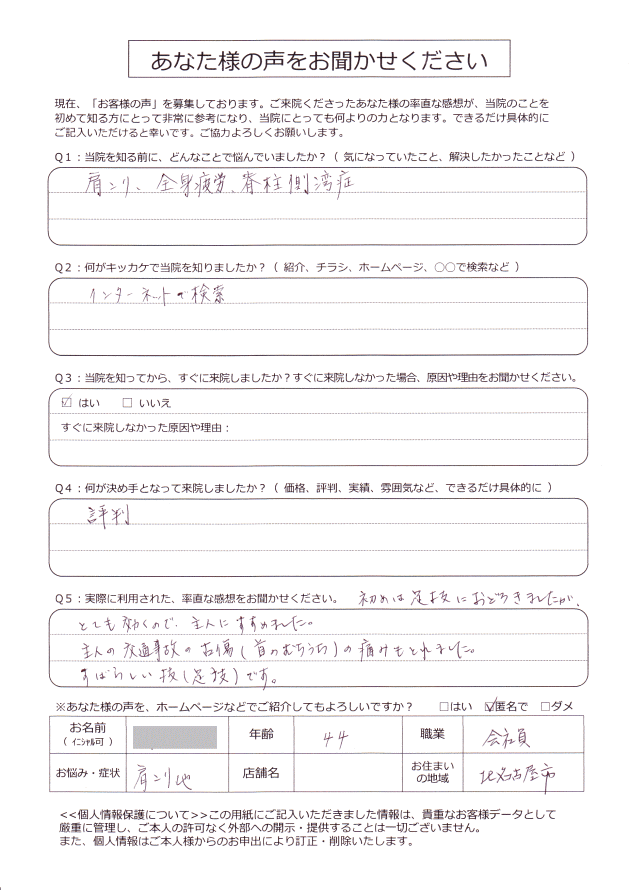 あなた様の声をお聞かせください
現在、「お客様の声」を募集しております。ご来院くださったあなた様の率直な感想が、当院のことを
初めて知る方にとって非常に参考になり、当院にとっても何よりの力となります。できるだけ具体的に
ご記入いただけると幸いです。ご協力よろしくお願いします。
Q1：当院を知る前に、どんなことで悩んでいましたか？（ 気になっていたこと、解決したかったことなど ）
肩コリ、全身疲労、脊柱側湾症
Q2：何がキッカケで当院を知りましたか？（ 紹介、チラシ、ホームページ、○○で検索など ）
インターネットで検索
Q3：当院を知ってから、すぐに来院しましたか？すぐに来院しなかった場合、原因や理由をお聞かせください。
☑ はい　□ いいえ
すぐに来院しなかった原因や理由：
Q4：何が決め手となって来院しましたか？（ 価格、評判、実績、雰囲気など、できるだけ具体的に ）
評判
Q5：実際に利用された、率直な感想をお聞かせください。 初めは足技におどろきましたが、
とても効くので、主人にすすめました。
主人の交通事故の古傷(首のむちうち)の痛みもとれました。
すばらしい技(足技)です。
※あなた様の声を、ホームページなどでご紹介してもよろしいですか？　□はい　☑匿名で　□ダメ
お名前
（ イニシャル可 ）
年齢 44 職業 会社員
お悩み・症状 肩コリ他 店舗名 お住まいの地域 北名古屋市
<<個人情報保護について>>この用紙にご記入いただきました情報は、貴重なお客様データとして
厳重に管理し、ご本人の許可なく外部への開示・提供することは一切ございません。
また、個人情報はご本人様からのお申出により訂正・削除いたします。